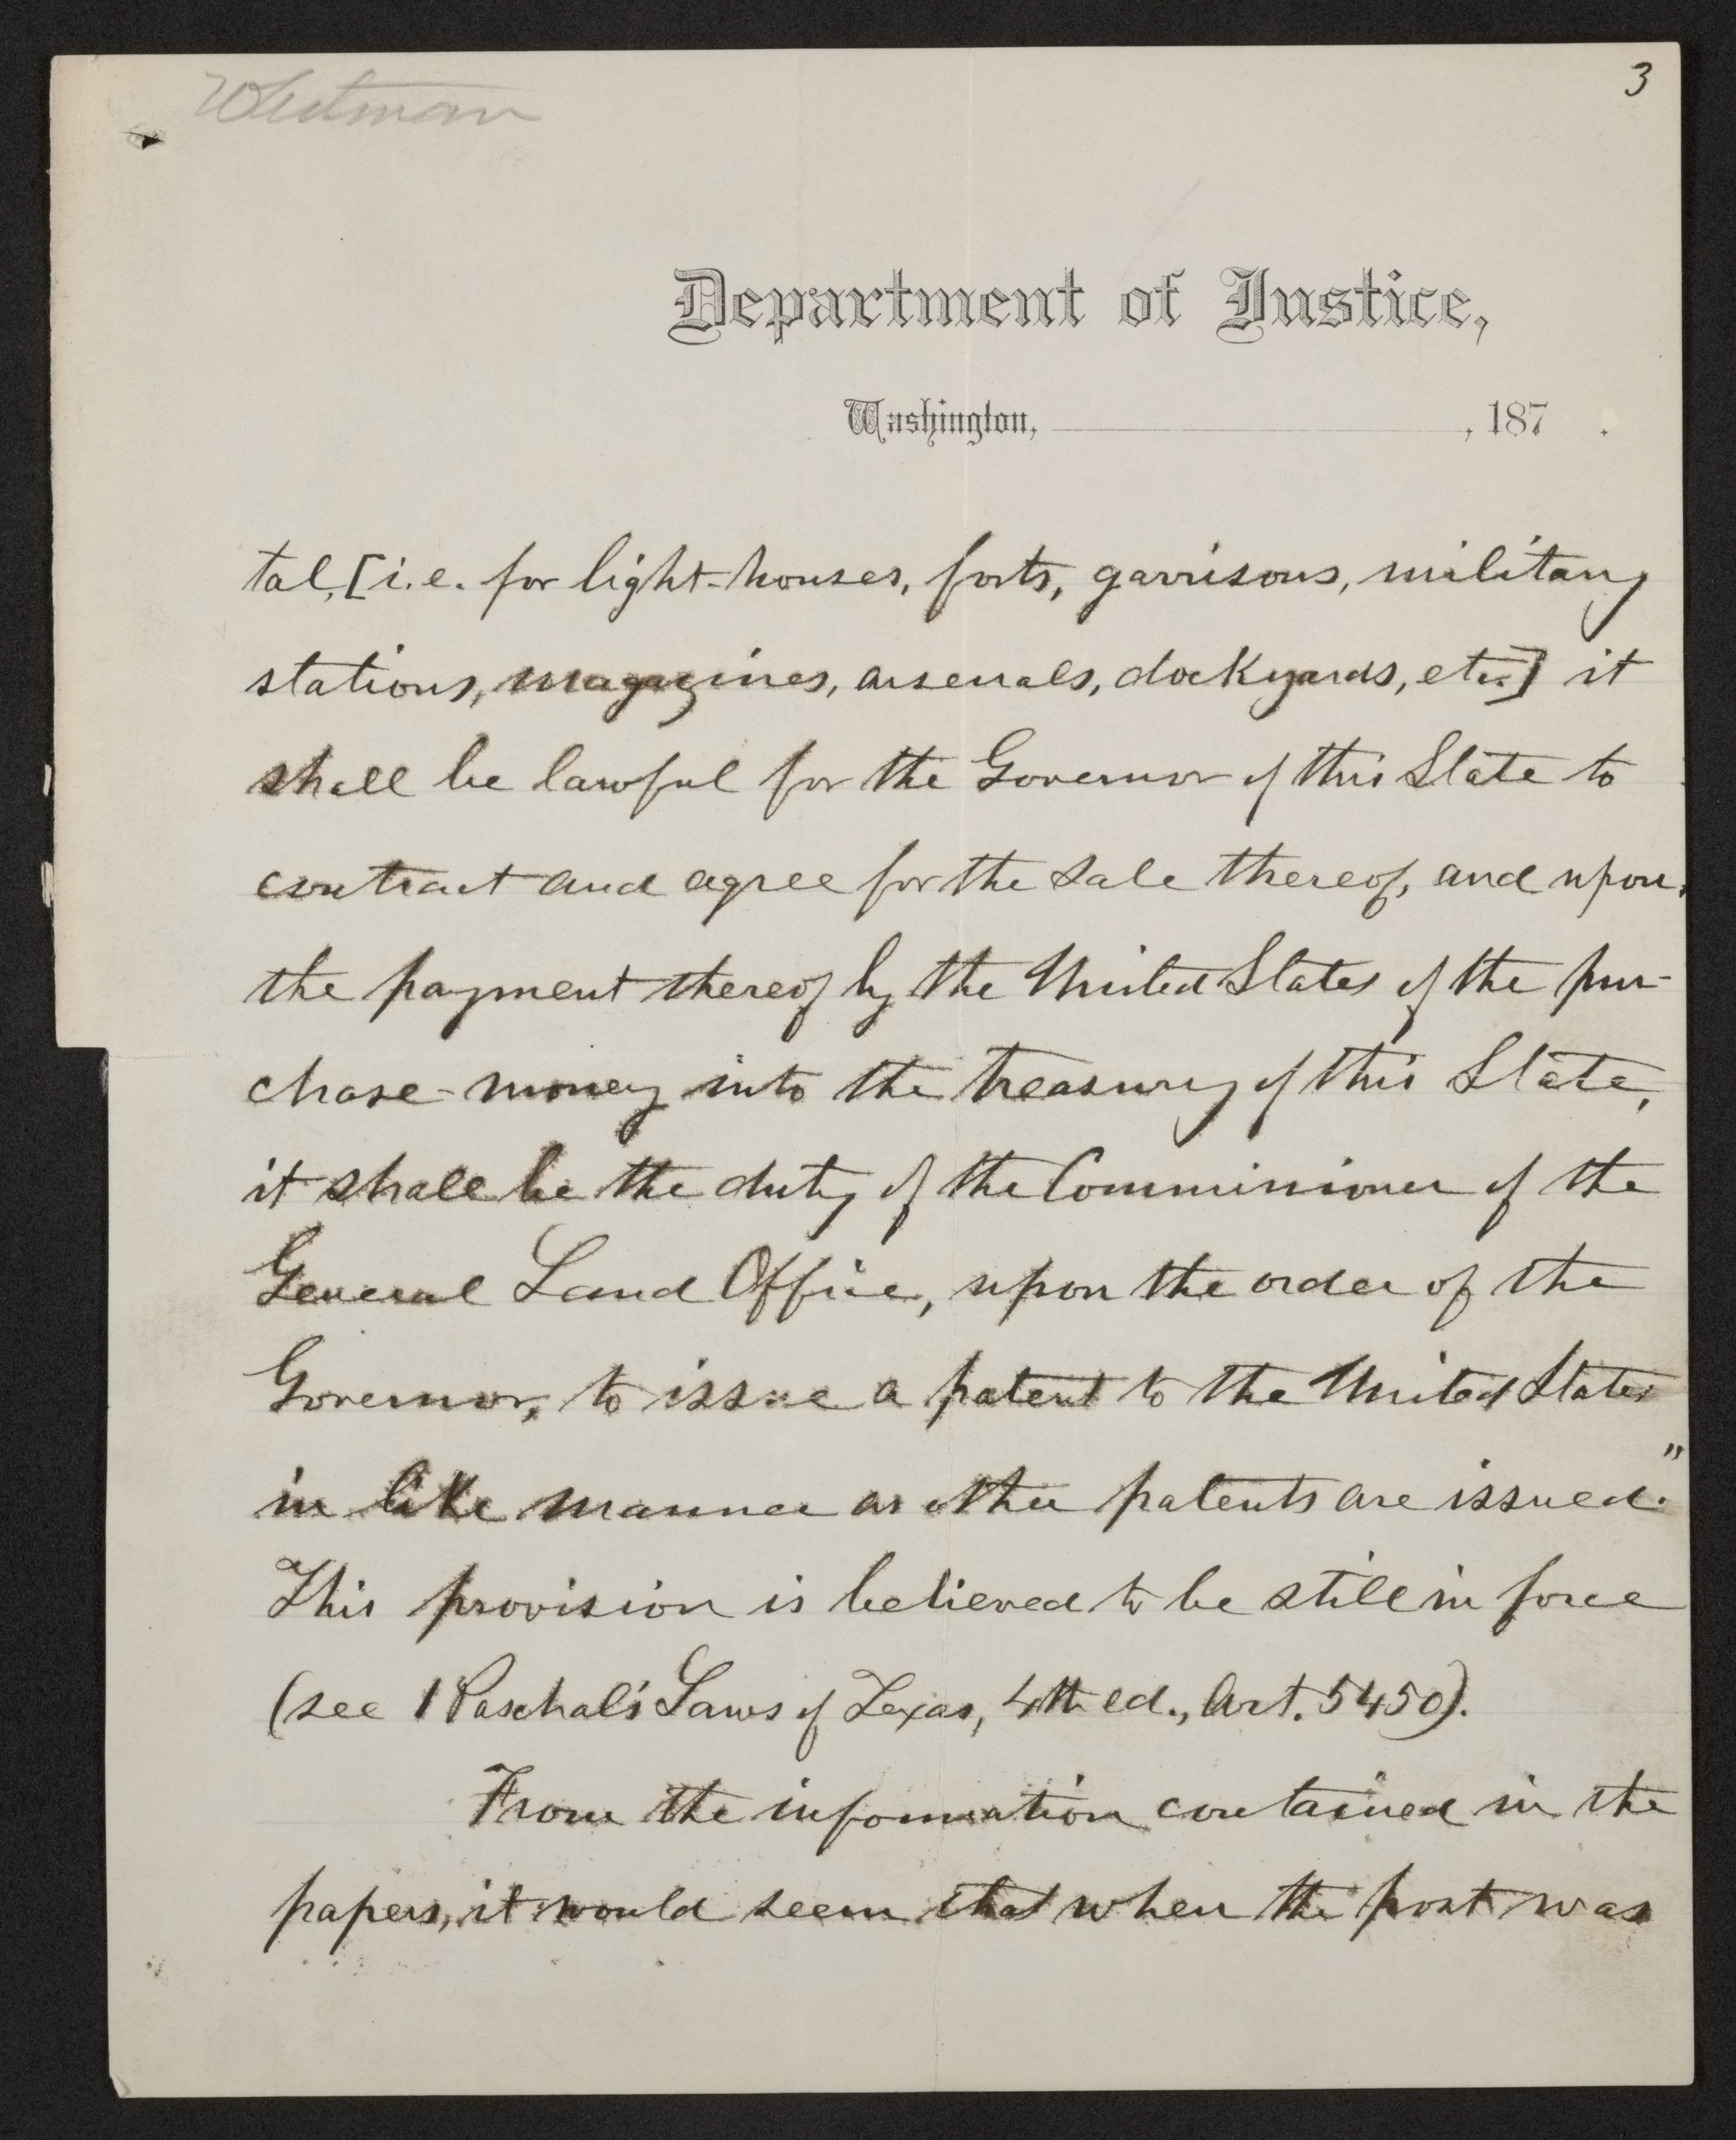 Whitman
3
Department of Justice,
Washington, , 187 .
tal, [i.e. for light-houses, forts, garrisons, military
stations, magazines, arsenals, dockyards, etc.] it
shall be lawful for the Governor of this State to
contract and agree for the sale thereof, and upon
the payment thereof by the United States of the pur-
chase-money into the treasury of this State,
it shall be the duty of the Commissioner of the
General Land Office, upon the order of the
Governor, to issue a patent to the United States
in like manner as other patents are issued."
This provision is believed to be still in force
(see 1 Paschal's Laws of Texas, 4th ed., Art. 5450).
From the information contained in the
papers, it would seem that when the post was